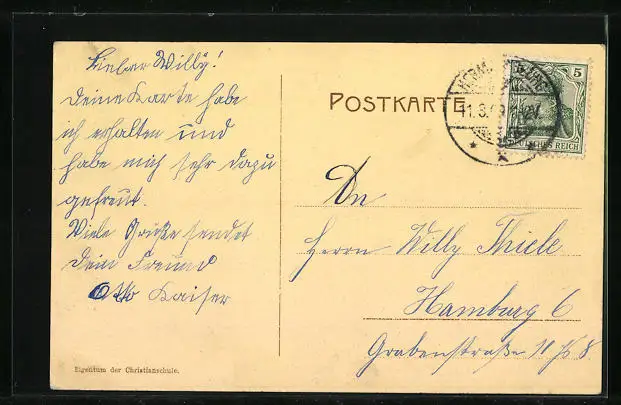 Lieber Willy!
Deine Karte habe
ich erhalten und
habe mich sehr dazu
gefreut.
Viele Grüße sendet
Dein Freund
Otto Kaiser
Eigentum der Christianschule.
POSTKARTE
5
11.3.
DEUTSCHES REICH
An
Herrn Willy Thiele
Hamburg 6
Grabenstraße